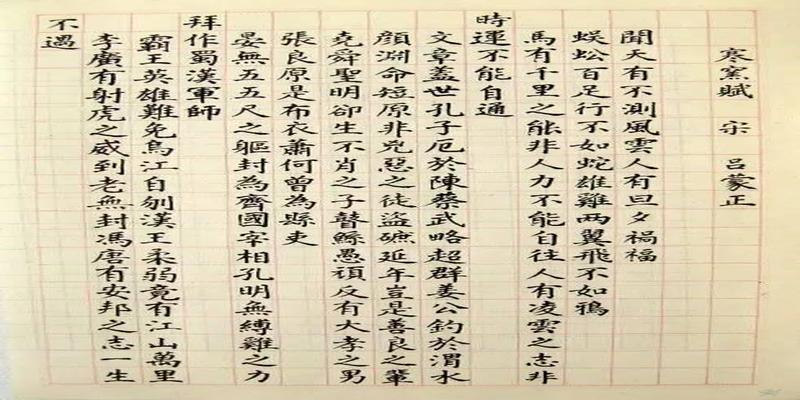 寒窯賦 宋 呂蒙正
聞天有不測風雲人有旦夕禍福
蜈蚣百足行不如蛇雄雞两翼飛不如鴉
馬有千里之能非人力不能自往人有凌雲之志非
時運不能自通
文章蓋世孔子厄於陳蔡武略超群姜公釣於渭水
顏淵命短原非兇惡之徒盜蹠延年豈是善良之輩
堯舜聖明卻生不肖之子瞽鯀愚頑反有大孝之男
張良原是布衣蕭何曾為縣吏
晏無五五尺之軀封為齊國宰相孔明無縛雞之力
拜作蜀漢軍師
霸王英雄難免烏江自刎漢王柔弱竟有江山萬里
李廣有射虎之威到老無封馮唐有安邦之志一生
不遇